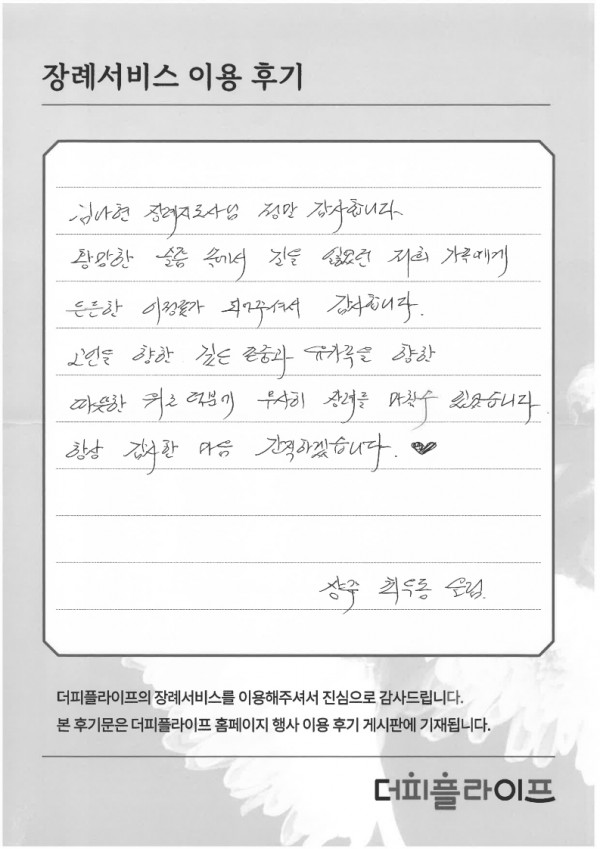 장례서비스 이용 후기
김나현 장례지도사님 정말 감사합니다.
황망한 슬픔 속에서 길을 잃었던 저희 가족에게
든든한 이정표가 되어주셔서 감사합니다.
고인을 향한 깊은 존중과 유가족을 향한
따뜻한 위로 덕분에 무사히 장례를 마칠수 있었습니다.
항상 감사한 마음 간직하겠습니다.
상주 최우동 올림.
더피플라이프의 장례서비스를 이용해주셔서 진심으로 감사드립니다.
본 후기문은 더피플라이프 홈페이지 행사 이용 후기 게시판에 기재됩니다.
더피플라이프